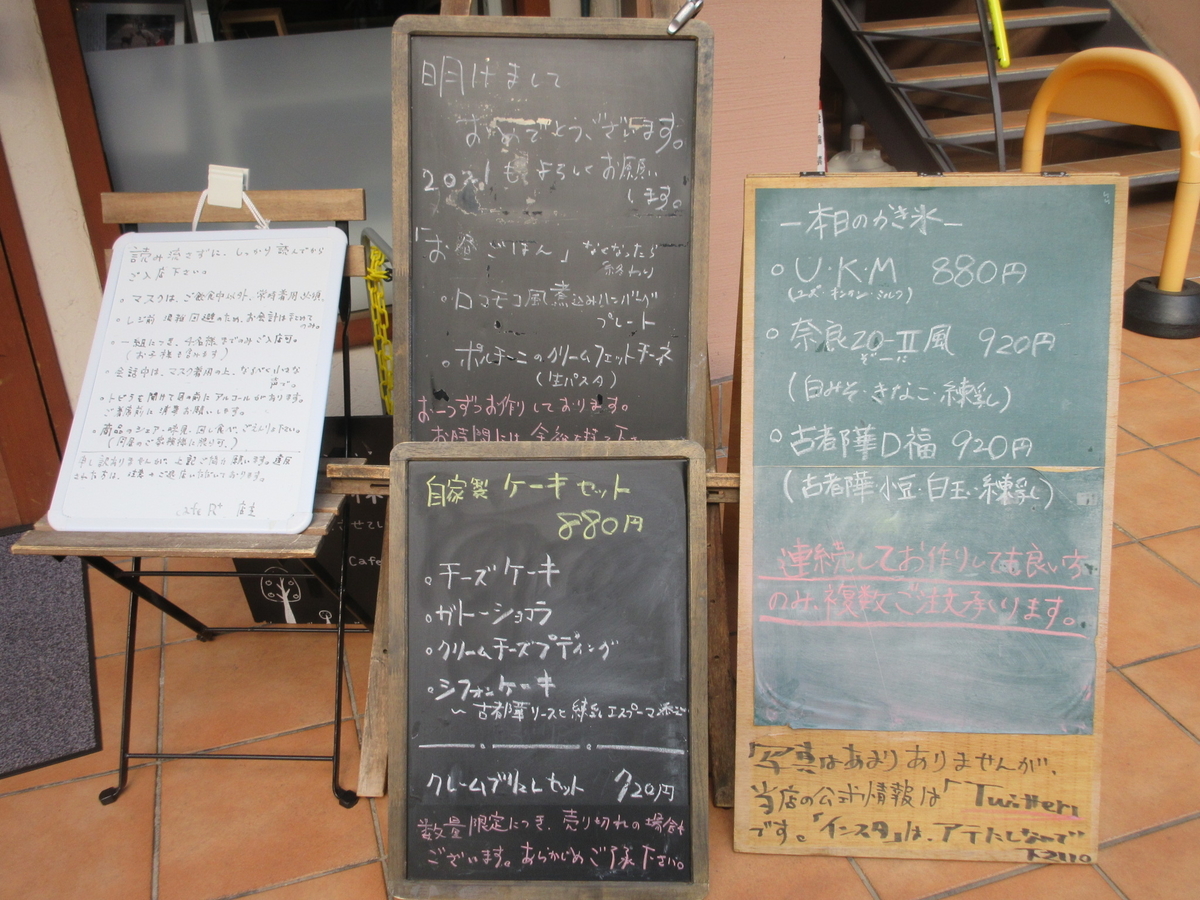 読み流さずに、しっかり読んでから
ご入店下さい。
・マスクは、ご飲食中以外、常時着用必須。
・レジ前 混雑回避のため、お会計はまとめて
のみ。
・一組につき、4名様までのみご入店可。
(お子様も含みます)
・会話中は、マスク着用の上、なるべく小さな
声で。
・トビラを開けて目の前にアルコールがあります。
ご着席前に消毒お願いします。
・商品のシェア・味見・回し食べ、ごえんりょ下さい。
(同居のご家族様に限り可。)
申し訳ありませんが、上記ご協力願います。違反
された方は、注意のご退店いただいております。
Cafe R+ 店主
明けまして
おめでとうございます。
2021も、よろしくお願い
します。
「お昼ごはん」なくなったら
終わり
○ロマモコ風煮込みハンバーグ
プレート
○ポルチーニのクリームフェットチーネ
(生パスタ)
お一つずつお作りしております。
お時間には余裕を
自家製 ケーキセット
880円
○チーズケーキ
○ガトーショコラ
○クリームチーズプディング
○シフォンケーキ
〜古都華ソースと練乳エスプーマ添え〜
クレームブリュレセット 720円
数量限定につき、売り切れの場合も
ございます。あらかじめご了承下さい。
Cafe
ー本日のかき氷ー
○U・K・M 880円
(ユズ・キンカン・ミルク)
○奈良ZO-II風 920円
ぞーに
(白みそ・きなこ・練乳)
○古都華D福 920円
(古都華・小豆・白玉・練乳)
連続してお作りしても良い方
のみ、複数ご注文承ります。
「写真はあまりありませんが、
当店の公式情報は「Twitter」
です。「インスタ」は、アテにしないで
下さい。